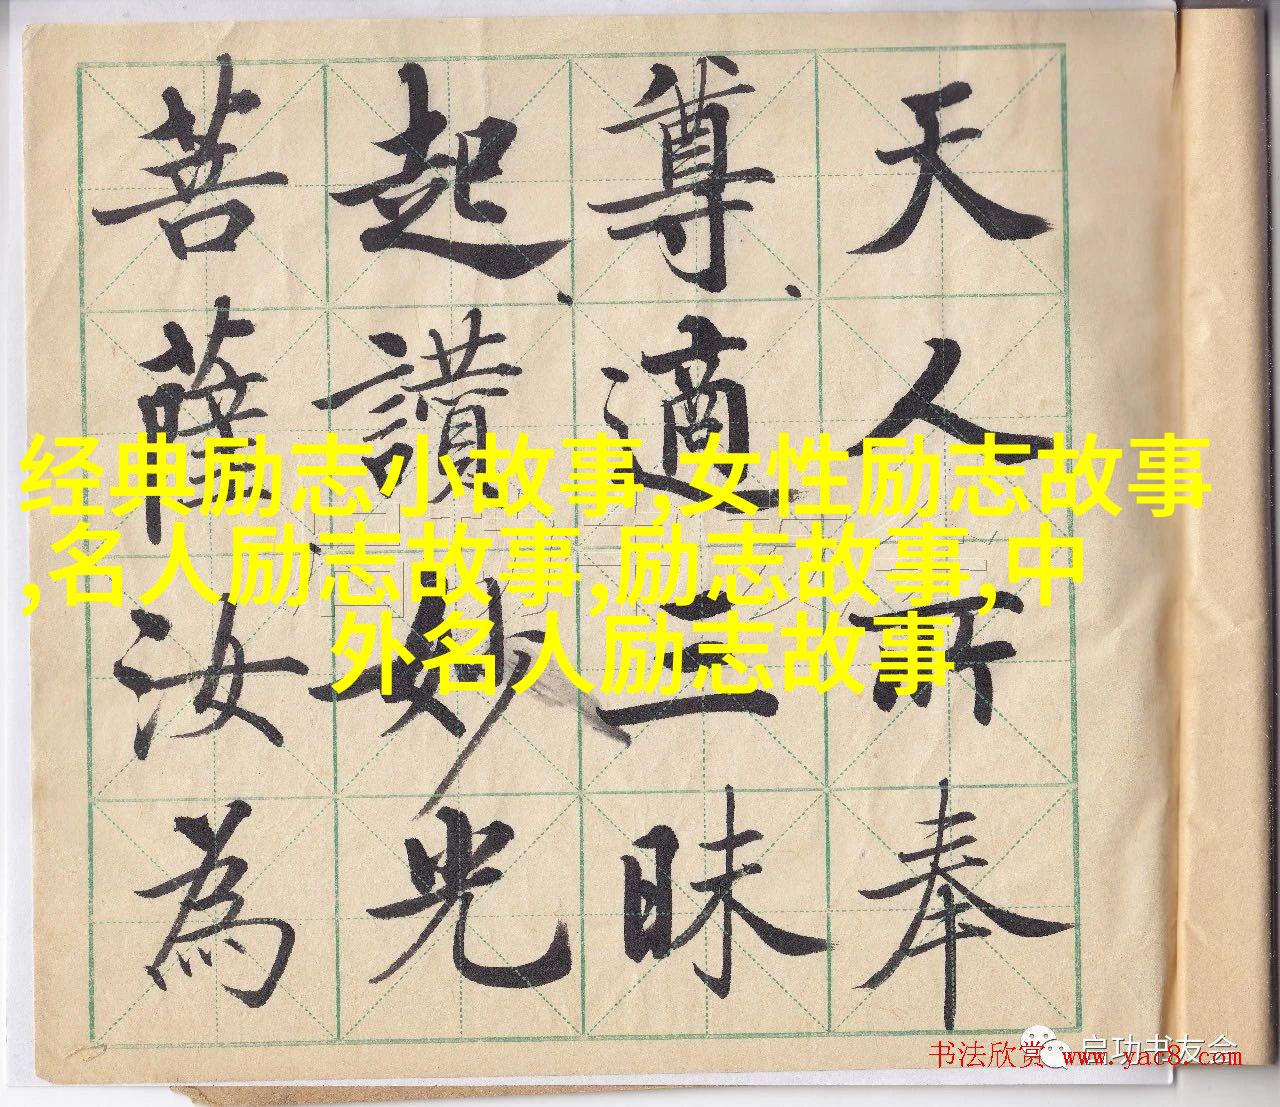 天人所奉
尊適三昧
起讚妙光
菩薩汝為
经典励志小故事,女性励志故事
,名人励志故事,励志故事,中
外名人励志故事
启功书友会
书法欣赏 www.yac8.com